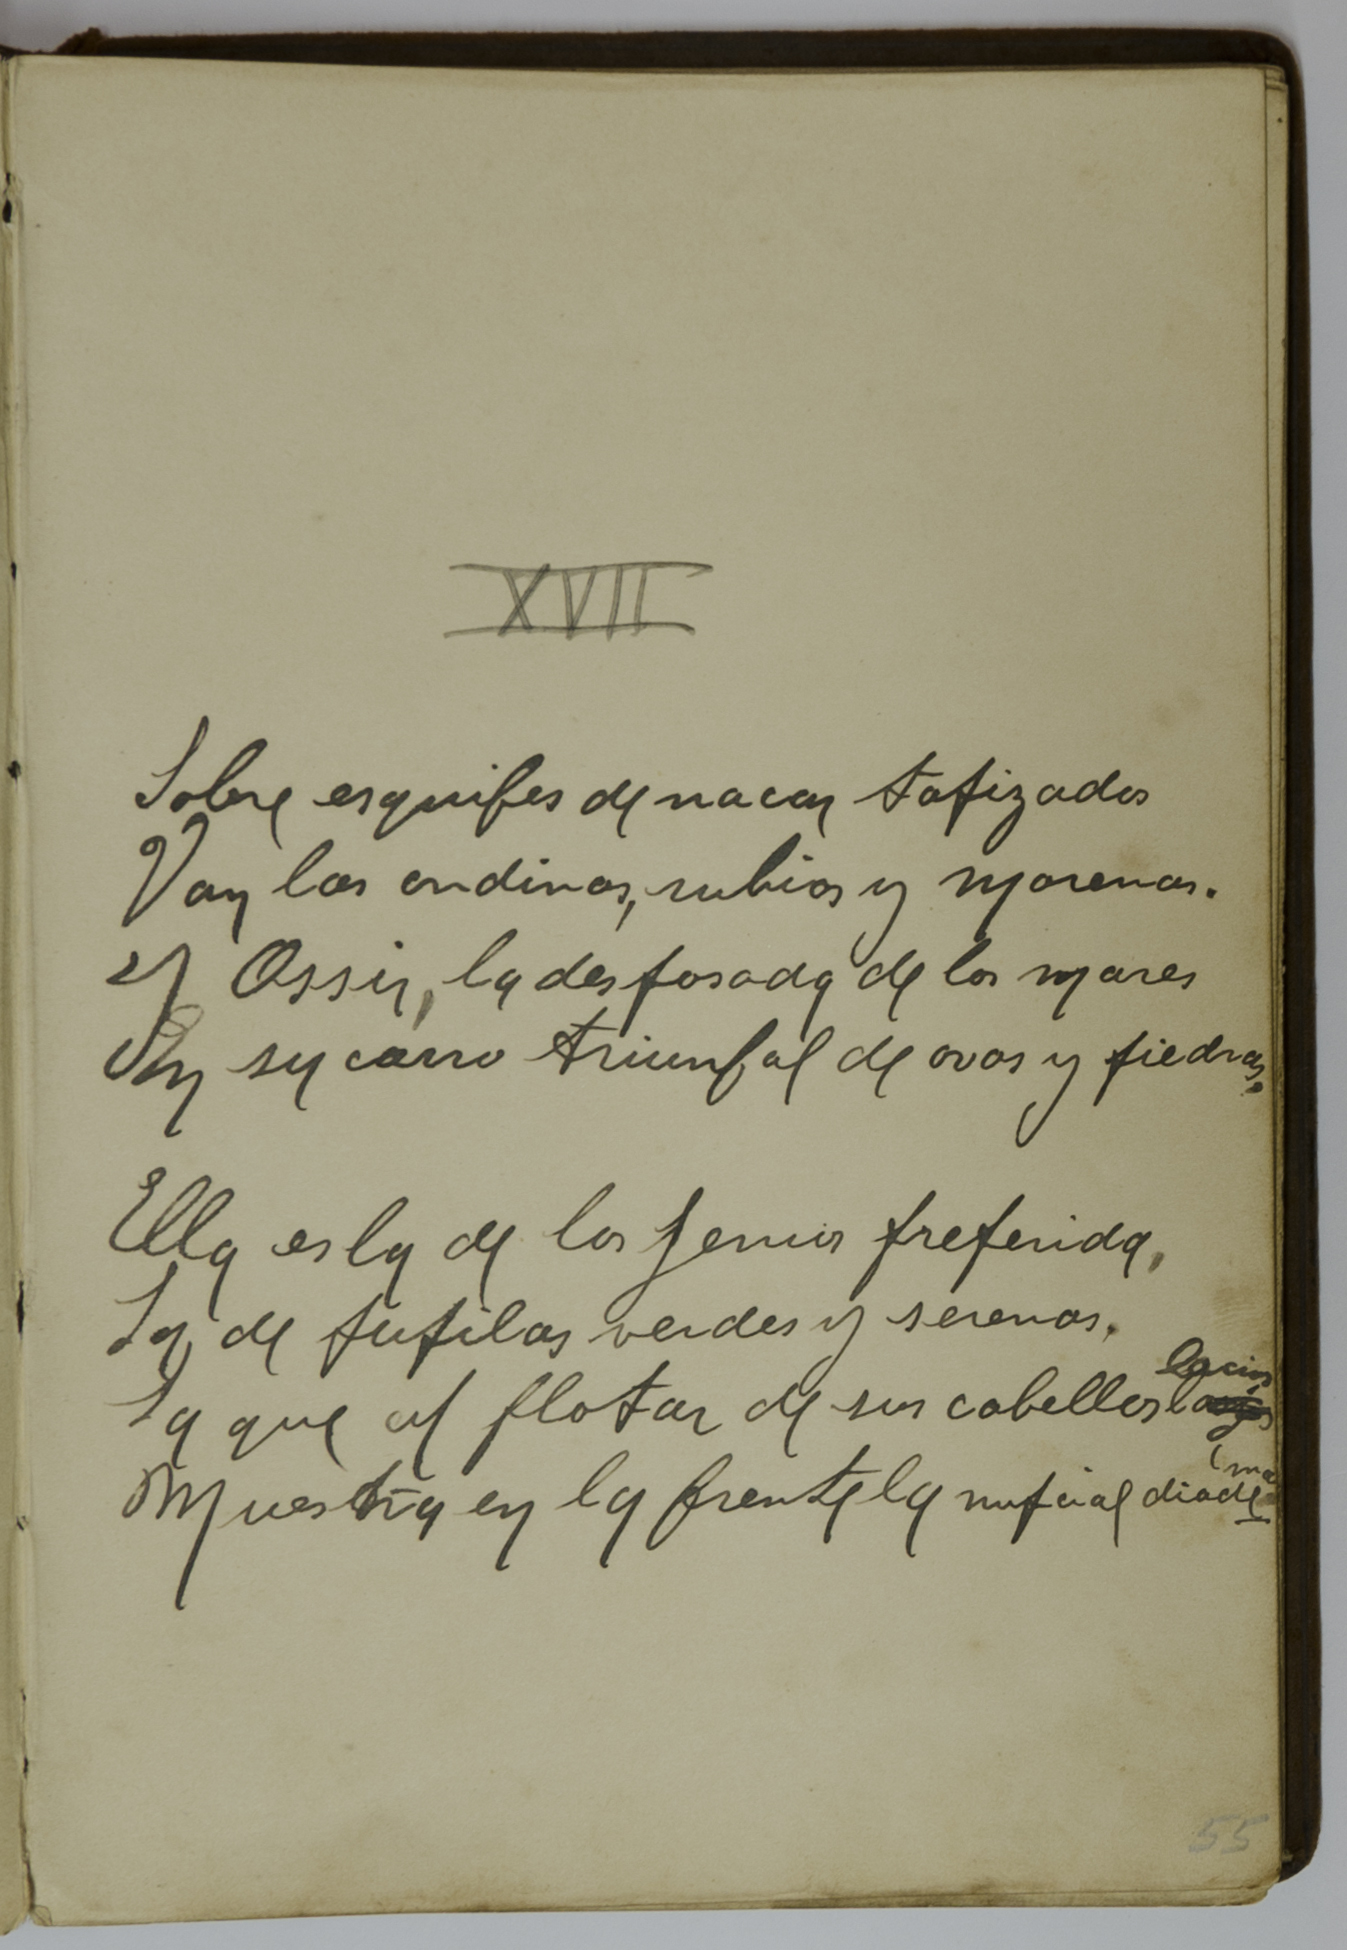 XVII
Sobre esquifes de nacar tapizados
Van las ondinas, rubias y morenas.
Y Ossir, la desposada de los mares
En su carro triunfal de ovas y piedras.
Ella es la de los genios preferida,
La de pupilas verdes y serenas.
La que al flotar de sus cabellos lacios
Muestra en la frente la nupcial diade
(ma
55